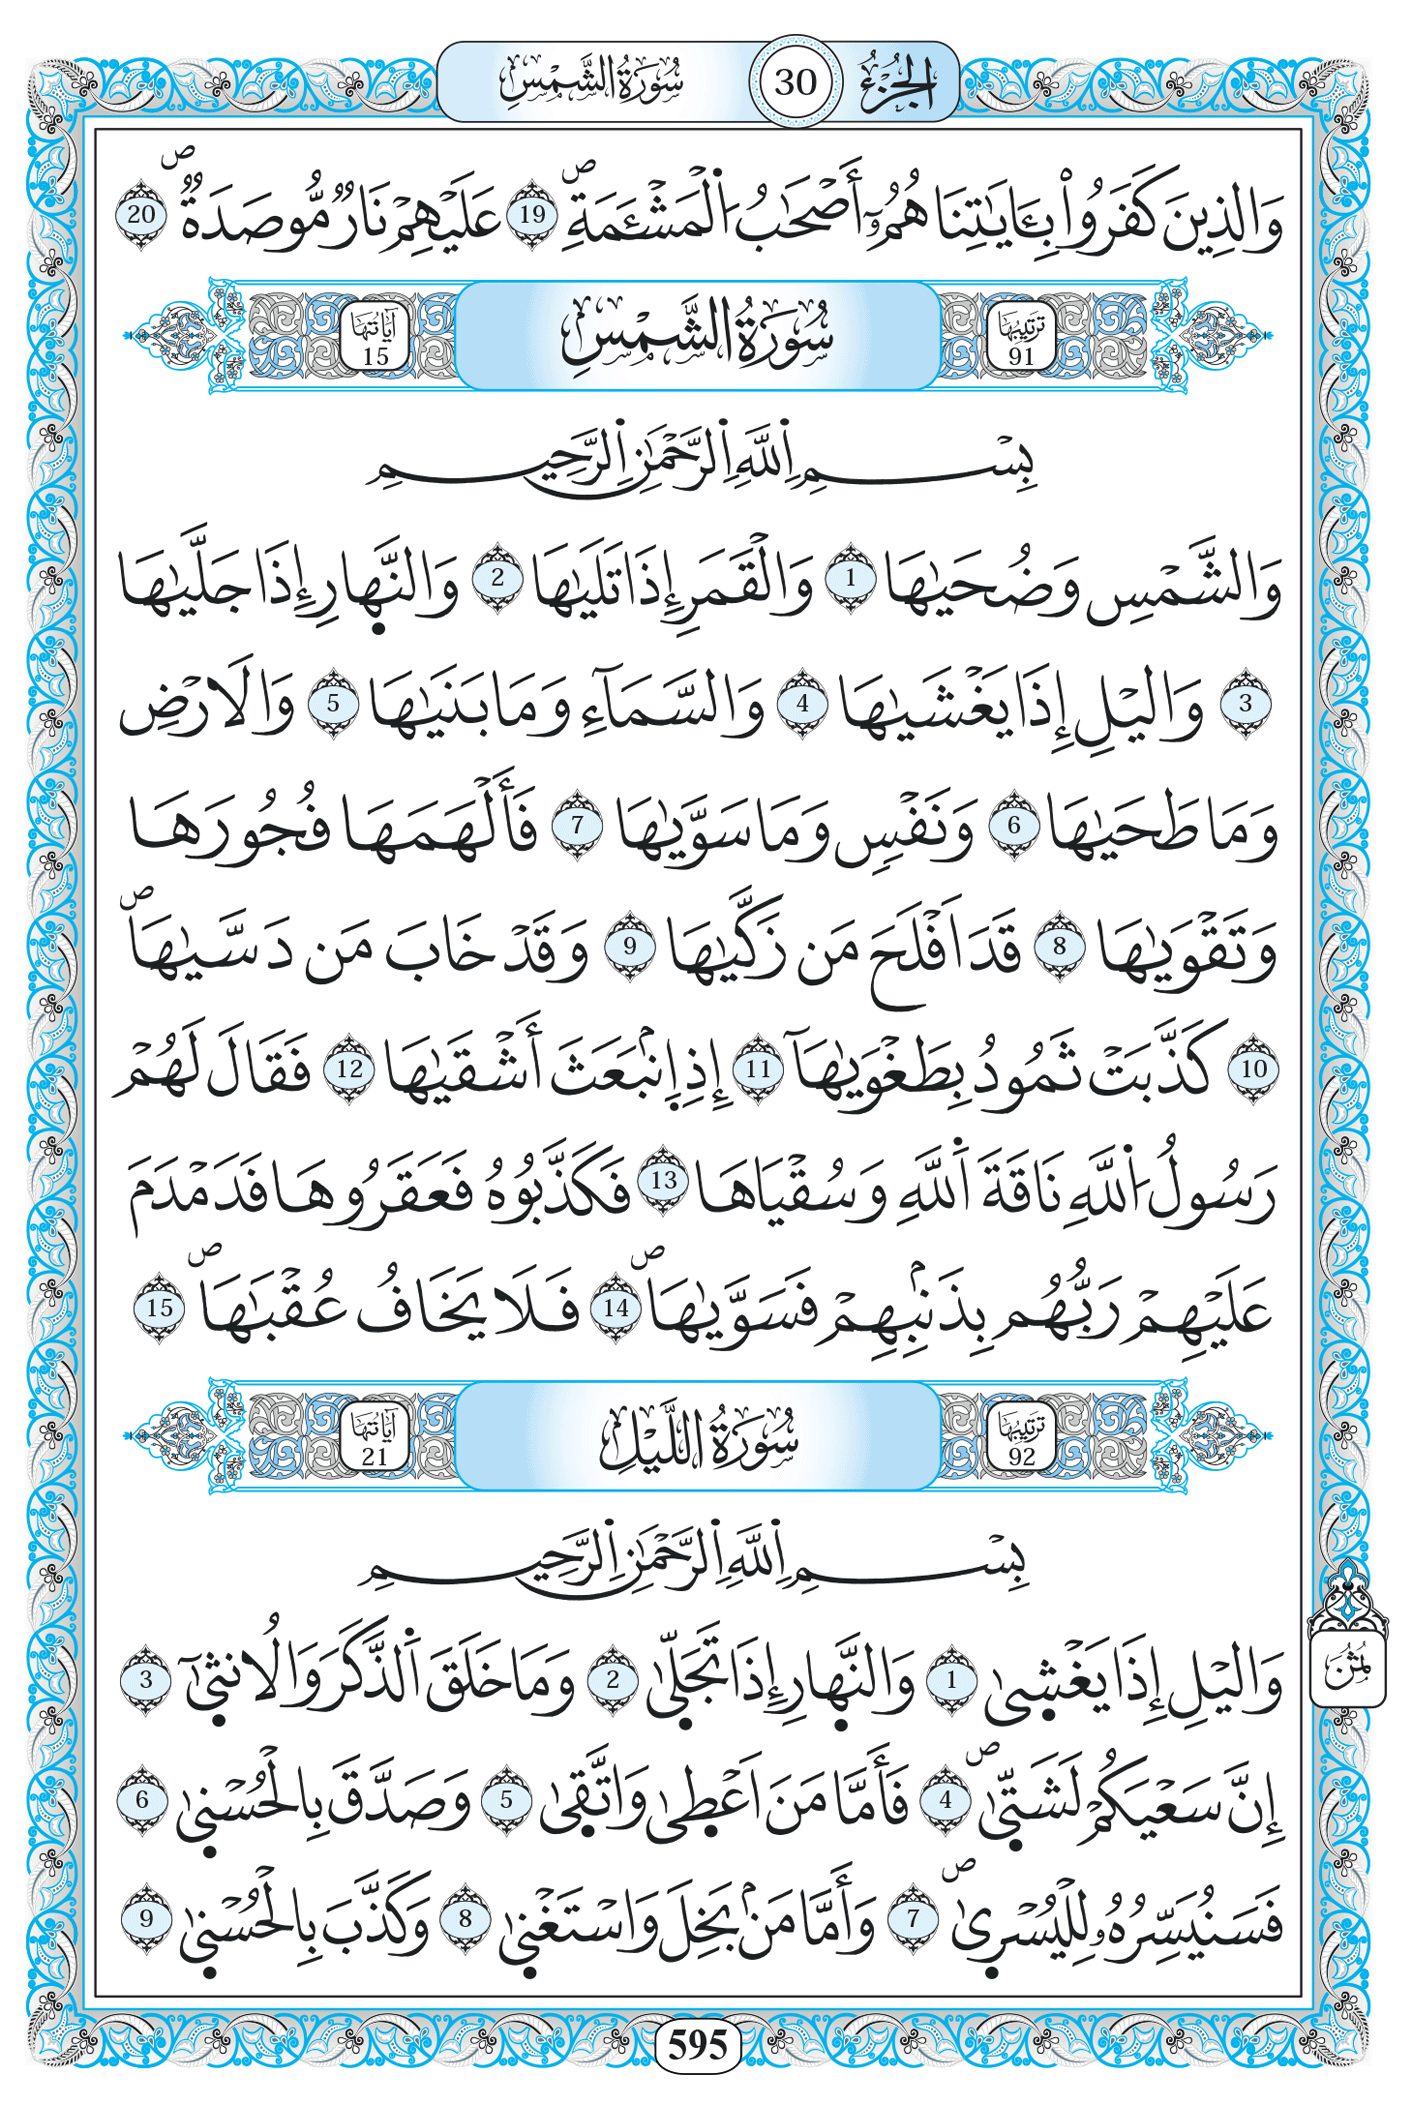 الجزء 30 سُورَةُ الشَّمْسِ
وَالذِينَ كَفَرُواْ بِـَٔايَٰتِنَا هُمُۥٓ أَصْحَٰبُ اُ۬لْمَشْـَٔمَةِۖ 19 عَلَيْهِمْ نَارٞ مُّوصَدَةٞۖ 20
ترتيبها 91 سُورَةُ الشَّمْسِ آياتها 15
بِسْمِ اِ۬للَّهِ اِ۬لرَّحْمَٰنِ اِ۬لرَّحِيمِ
وَالشَّمْسِ وَضُحَيٰهَا 1 وَالْقَمَرِ إِذَا تَلَيٰهَا 2 وَالنَّهٰارِ إِذَا جَلَّيٰهَا
3 وَاليْلِ إِذَا يَغْشَيٰهَا 4 وَالسَّمَآءِ وَمَا بَنَيٰهَا 5 وَالَارْضِ
وَمَا طَحَيٰهَا 6 وَنَفْسٖ وَمَا سَوَّيٰهَا 7 فَأَلْهَمَهَا فُجُورَهَا
وَتَقْوَيٰهَا 8 قَدَ اَفْلَحَ مَن زَكَّيٰهَا 9 وَقَدْ خَابَ مَن دَسَّيٰهَاۖ
10 كَذَّبَتْ ثَمُودُ بِطَغْوَيٰهَآ 11 إِذِ اِ۪نۢبَعَثَ أَشْقَيٰهَا 12 فَقَالَ لَهُمْ
رَسُولُ اُ۬للَّهِ نَاقَةَ اَ۬للَّهِ وَسُقْيَاهَا 13 فَكَذَّبُوهُ فَعَقَرُوهَا فَدَمْدَمَ
عَلَيْهِمْ رَبُّهُم بِذَنۢبِهِمْ فَسَوَّيٰهَاۖ 14 فَلَا يَخَافُ عُقْبَٰهَاۖ 15
ترتيبها 92 سُورَةُ اللَّيْلِ آياتها 21
بِسْمِ اِ۬للَّهِ اِ۬لرَّحْمَٰنِ اِ۬لرَّحِيمِ
وَاليْلِ إِذَا يَغْش۪يٰ 1 وَالنَّه۪ارِ إِذَا تَجَلّ۪يٰ 2 وَمَا خَلَقَ اَ۬لذَّكَرَ وَالُانث۪يٰٓ 3
إِنَّ سَعْيَكُمْ لَشَتّ۪يٰۖ 4 فَأَمَّا مَنَ اَعْط۪يٰ وَاتَّق۪يٰ 5 وَصَدَّقَ بِالْحُسْن۪يٰ 6
فَسَنُيَسِّرُهُۥ لِلْيُسْر۪يٰۖ 7 وَأَمَّا مَنۢ بَخِلَ وَاسْتَغْن۪يٰ 8 وَكَذَّبَ بِالْحُسْن۪يٰ 9
ثمن
595